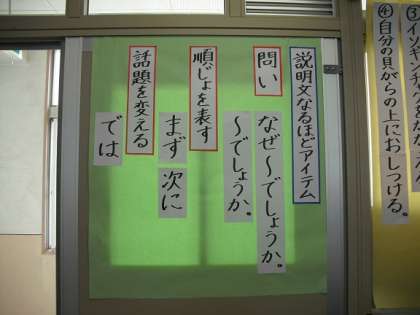 ④自分の貝がらの上におしつける。
説明文なるほどアイテム
問い
なぜ～でしょうか。
～でしょうか。
順じょを表す
まず 次に
話題を変える
では